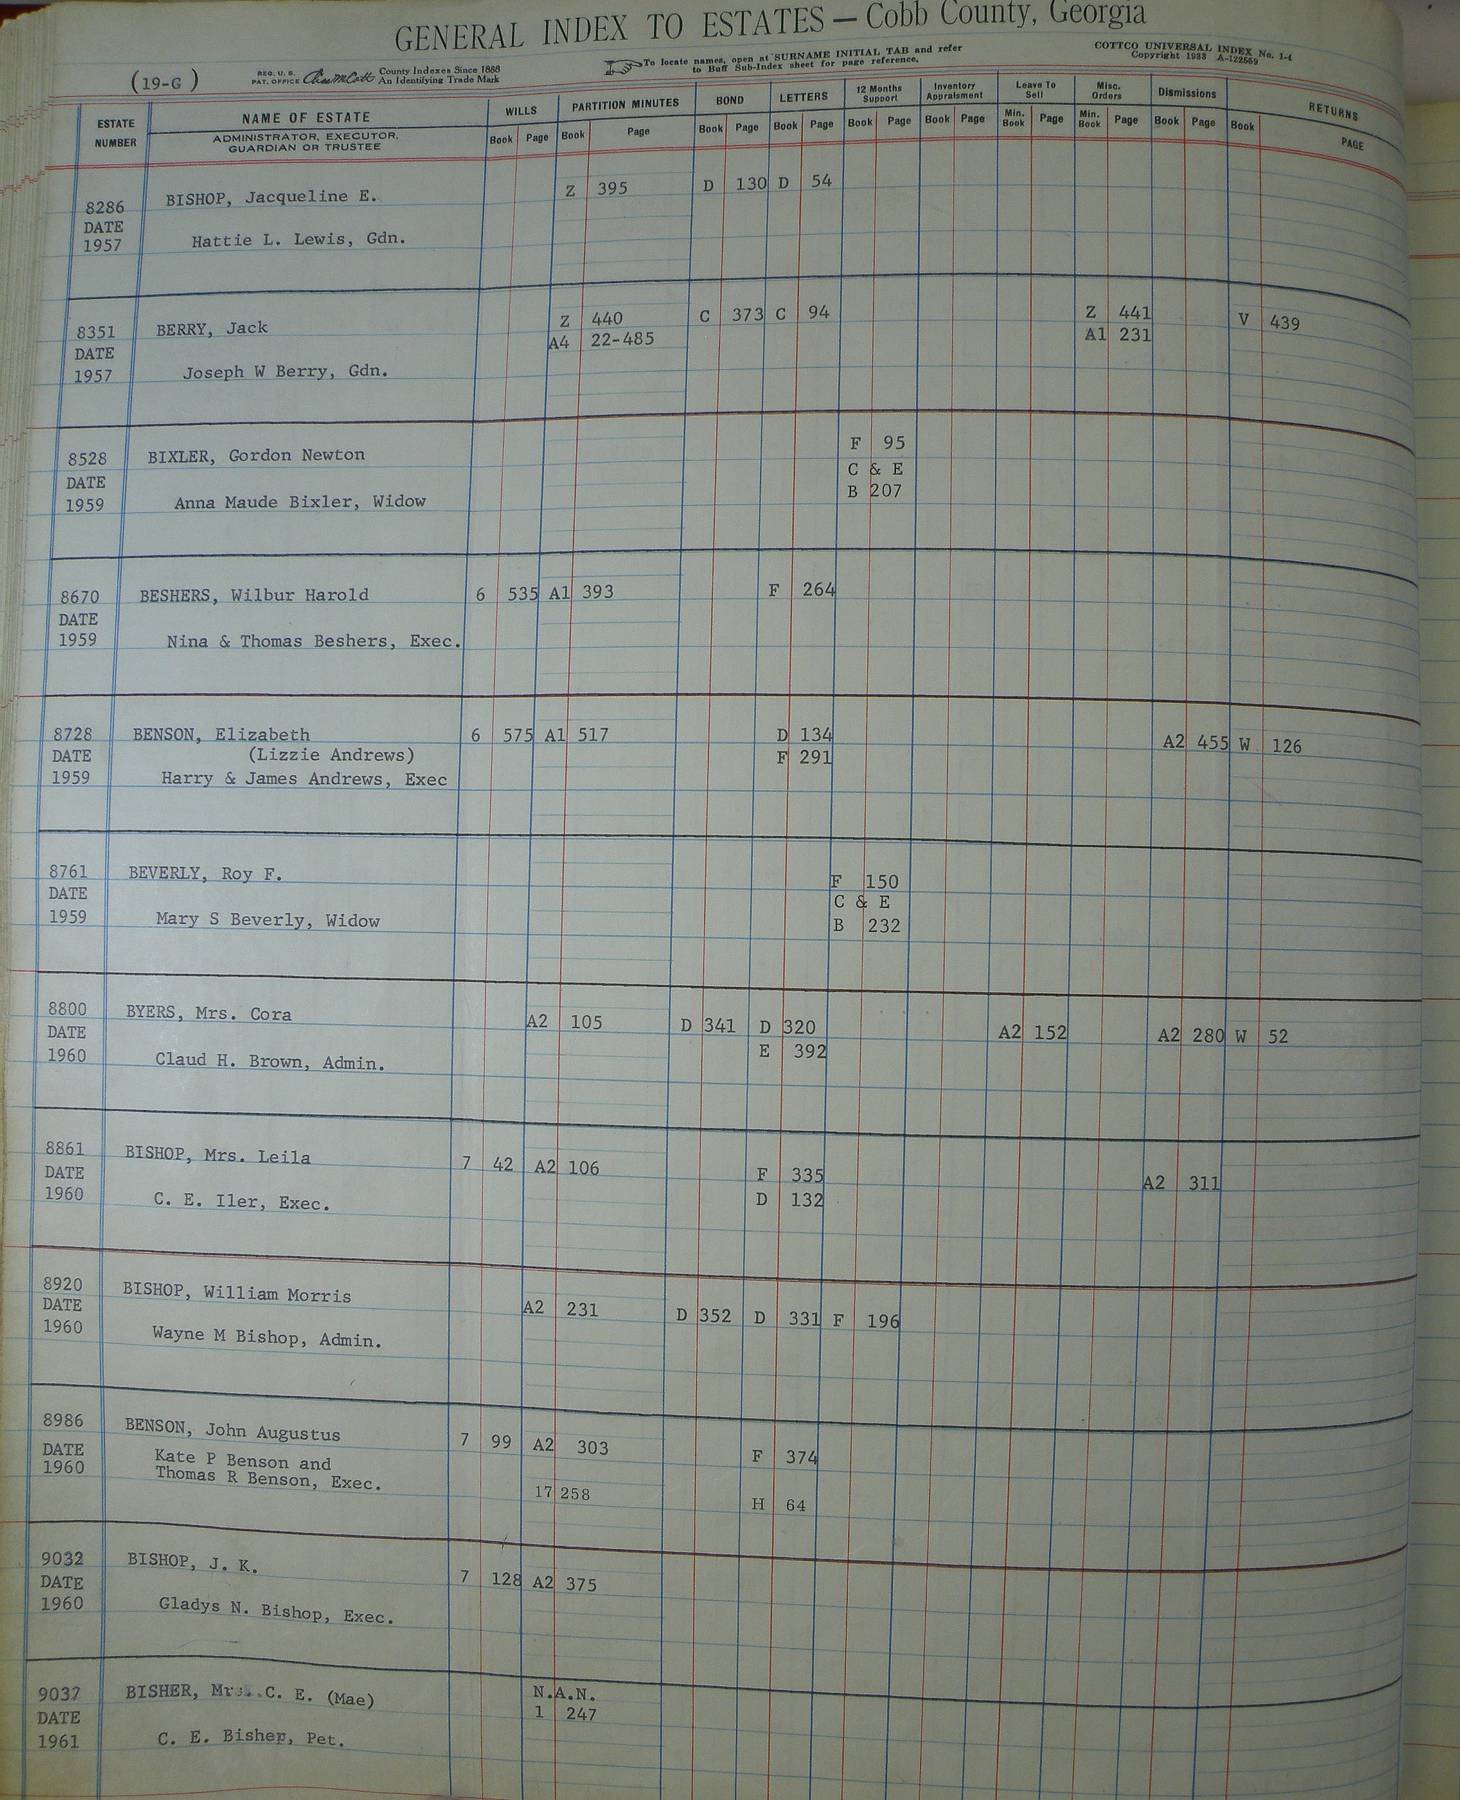 GENERAL INDEX TO ESTATES — Cobb County, Georgia
(19-G) REG. U. S. PAT. OFFICE County Indexes Since 1888 An Identifying Trade Mark To locate names, open at SURNAME INITIAL TAB and refer to Buff Sub-Index sheet for page reference. COTTCO UNIVERSAL INDEX No. 1-4
Copyright 1933 A-122569
ESTATE NUMBER NAME OF ESTATE WILLS PARTITION MINUTES BOND LETTERS 12 Months Support Inventory Appraisment Leave To Sell Misc. Orders Dismissions RETURNS
ADMINISTRATOR, EXECUTOR, GUARDIAN OR TRUSTEE Book Page Book Page Book Page Book Page Book Page Book Page Min. Book Page Min. Book Page Book Page Book PAGE
8286 BISHOP, Jacqueline E. Z 395 D 130 D 54
DATE
1957 Hattie L. Lewis, Gdn.
8351 BERRY, Jack Z 440 C 373 C 94 Z 441 V 439
DATE A4 22-485 A1 231
1957 Joseph W Berry, Gdn.
8528 BIXLER, Gordon Newton F 95
DATE C & E
1959 Anna Maude Bixler, Widow B 207
8670 BESHERS, Wilbur Harold 6 535 A1 393 F 264
DATE
1959 Nina & Thomas Beshers, Exec.
8728 BENSON, Elizabeth 6 575 A1 517 D 134 A2 455 W 126
DATE (Lizzie Andrews) F 291
1959 Harry & James Andrews, Exec
8761 BEVERLY, Roy F. F 150
DATE C & E
1959 Mary S Beverly, Widow B 232
8800 BYERS, Mrs. Cora A2 105 D 341 D 320 A2 152 A2 280 W 52
DATE E 392
1960 Claud H. Brown, Admin.
8861 BISHOP, Mrs. Leila 7 42 A2 106 F 335 A2 311
DATE D 132
1960 C. E. Iler, Exec.
8920 BISHOP, William Morris A2 231 D 352 D 331 F 196
DATE
1960 Wayne M Bishop, Admin.
8986 BENSON, John Augustus 7 99 A2 303 F 374
DATE Kate P Benson and
1960 Thomas R Benson, Exec. 17 258 H 64
9032 BISHOP, J. K. 7 128 A2 375
DATE
1960 Gladys N. Bishop, Exec.
9037 BISHER, Mrs. C. E. (Mae) N.A.N.
DATE 1 247
1961 C. E. Bisher, Pet.